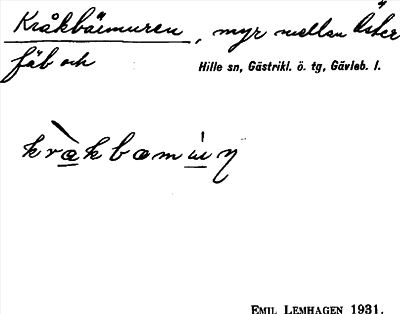 Kråkbäcmuren, myr mellan Öster
fäb och
Hille sn, Gästrikl. ö. tg, Gävleb. l.
EMIL LEMHAGEN 1931.